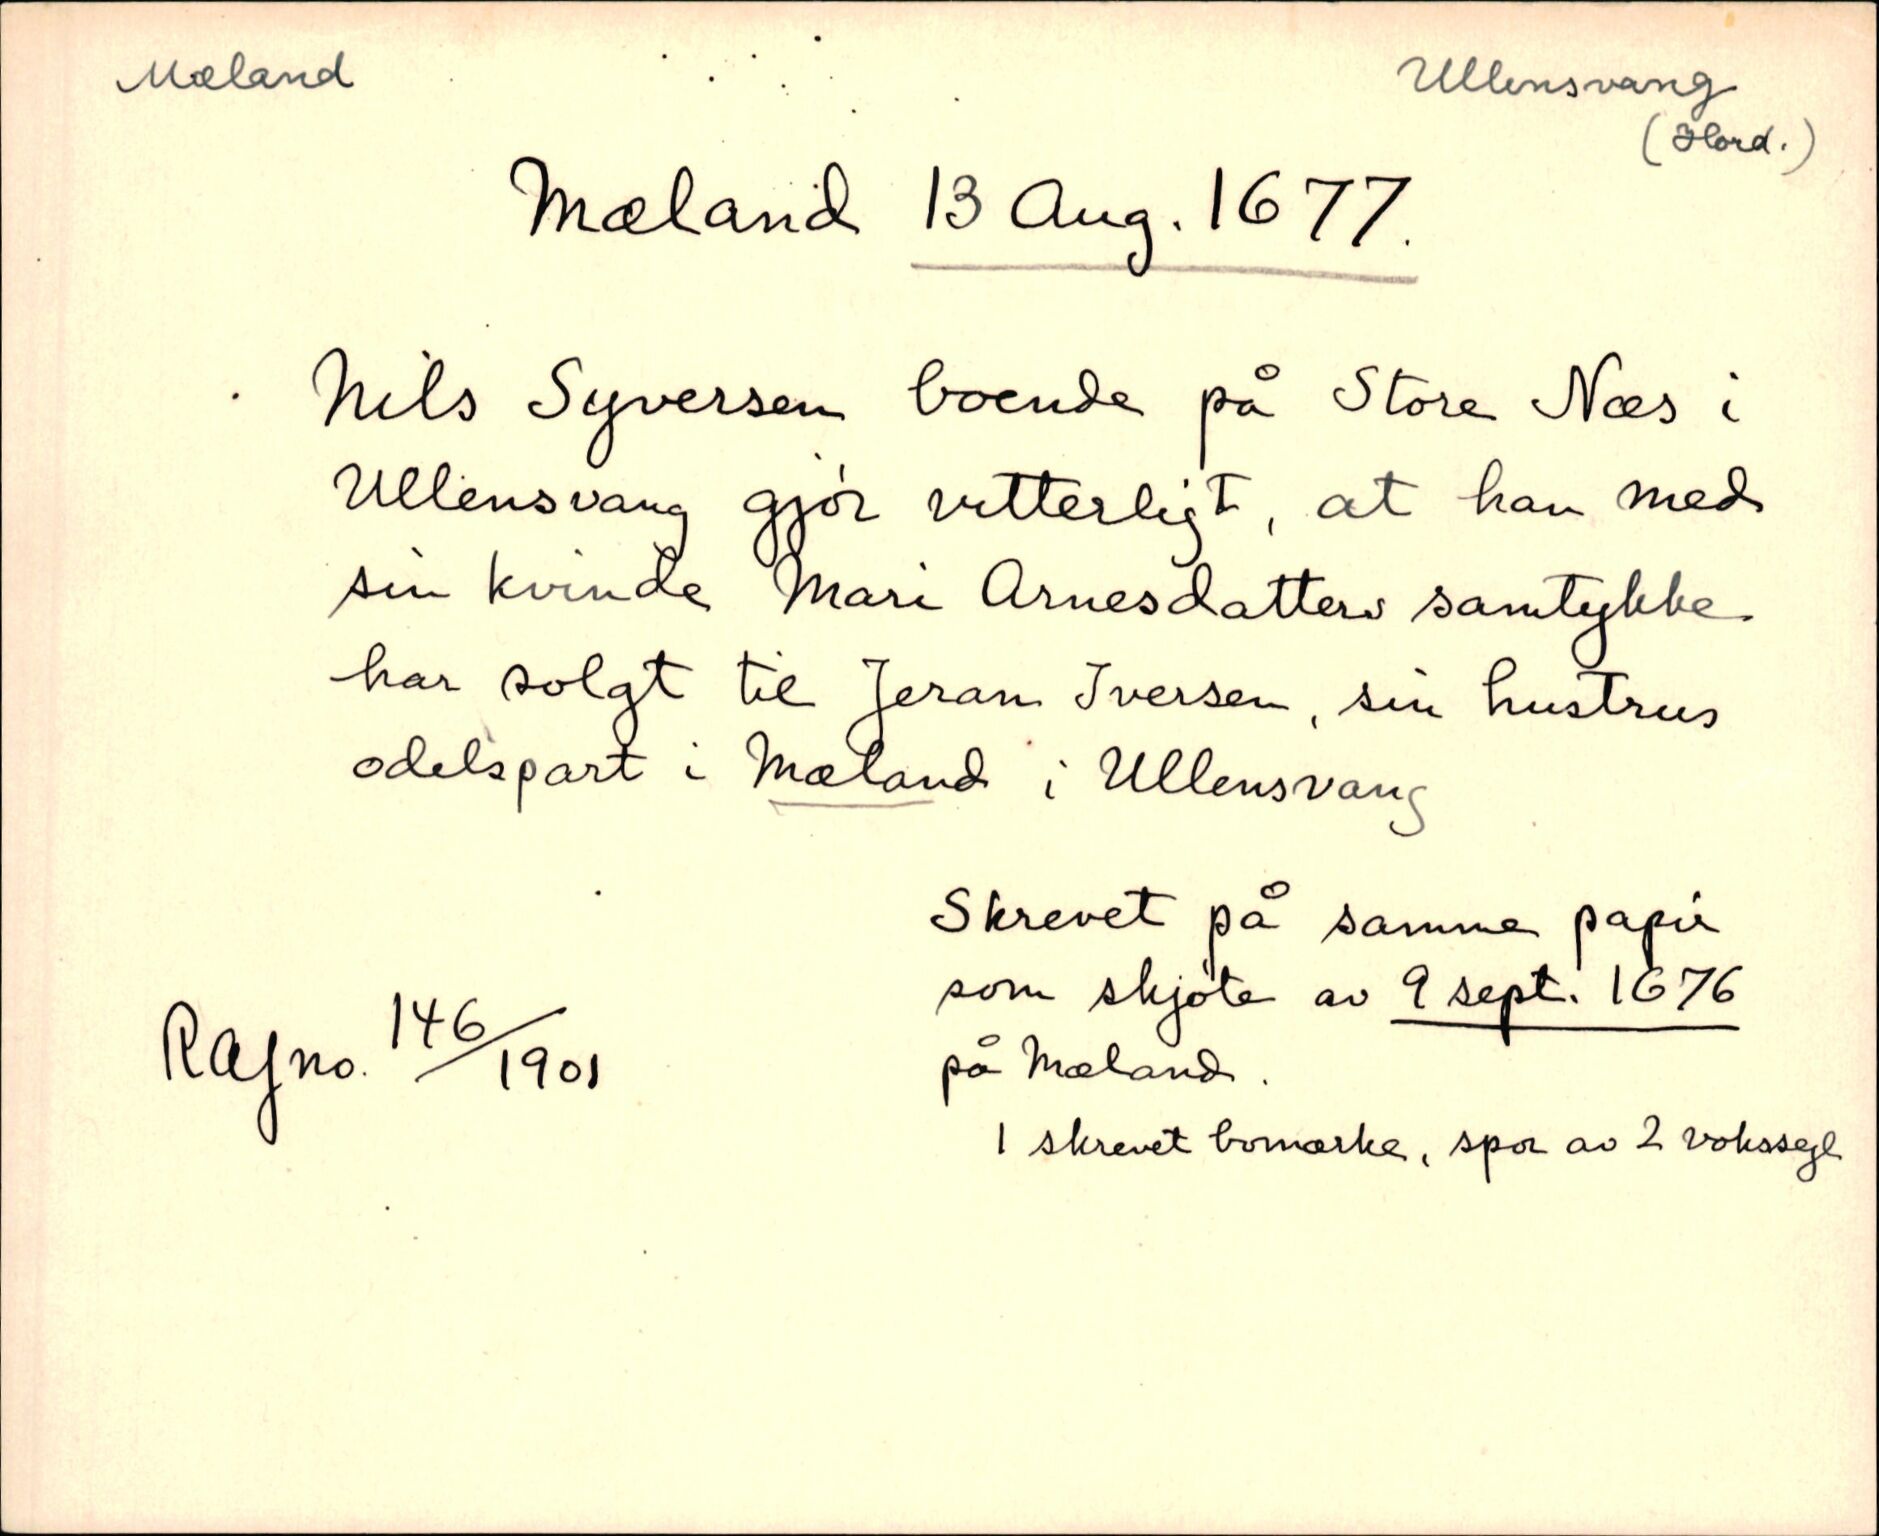 Mæland
Ullensvang
(Hord.)
Mæland 13 Aug. 1677.
Nils Syversen boende på Store Næs i
Ullensvang gjör vitterligt, at han med
sin kvinde Mari Arnesdatters samtykke
har solgt til Jeran Iversen, sin hustrus
odelspart i Mæland i Ullensvang
Skrevet på samme papir
som skjöte av 9 sept. 1676
på Mæland.
RAJno. 146/1901
1 skrevet bomærke, spor av 2 vokssegl